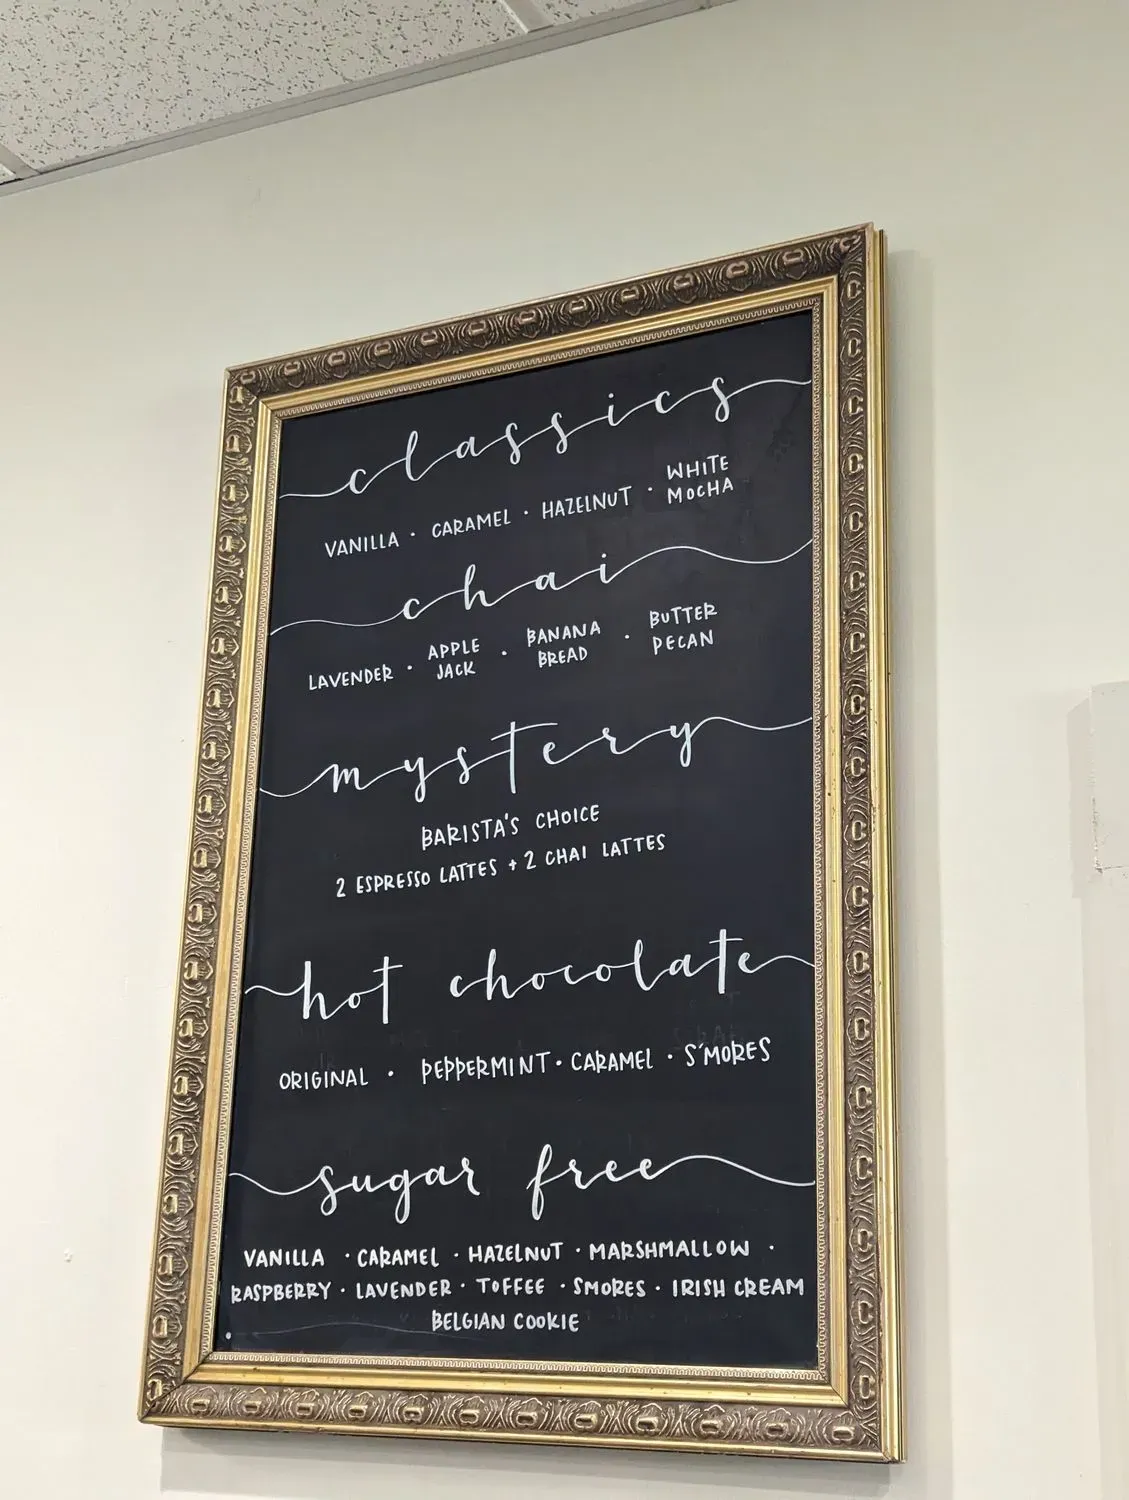 classics
VANILLA · CARAMEL · HAZELNUT · WHITE MOCHA
chai
LAVENDER · APPLE JACK · BANANA BREAD · BUTTER PECAN
mystery
BARISTA'S CHOICE
2 ESPRESSO LATTES + 2 CHAI LATTES
hot chocolate
ORIGINAL · PEPPERMINT · CARAMEL · S'MORES
sugar free
VANILLA · CARAMEL · HAZELNUT · MARSHMALLOW ·
RASPBERRY · LAVENDER · TOFFEE · SMORES · IRISH CREAM
· BELGIAN COOKIE